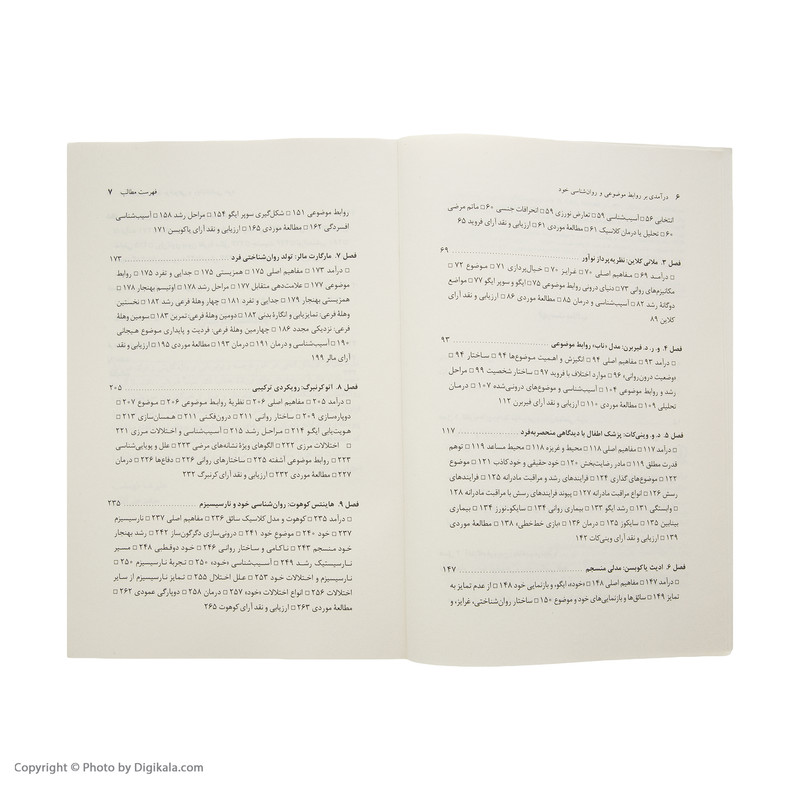 ۶ درآمدی بر روابط موضوعی و روان‌شناسی خود
انتخابی ۵۶ □ آسیب‌شناسی ۵۹ □ تعارض نورزی ۵۹ □ انحرافات جنسی ۶۰ □ ماتم مرضی
۶۰ □ تحلیل یا درمان کلاسیک ۶۱ □ مطالعهٔ موردی ۶۱ □ ارزیابی و نقد آرای فروید ۶۵
فصل ۳. ملانی کلاین: نظریه‌پرداز نوآور ۶۹
□ درآمد ۶۹ □ مفاهیم اصلی ۷۰ □ غرایز ۷۰ □ خیال‌پردازی ۷۱ □ موضوع ۷۲ □
مکانیزم‌های روانی ۷۳ □ دنیای درونی روابط موضوعی ۷۵ □ ایگو و سوپر ایگو ۷۷ □ مواضع
دوگانهٔ رشد ۸۲ □ آسیب‌شناسی و درمان ۸۵ □ مطالعهٔ موردی ۸۶ □ ارزیابی و نقد آرای
کلاین ۸۹
فصل ۴. و. ر. د. فیربرن: مدل «ناب» روابط موضوعی ۹۳
□ درآمد ۹۳ □ مفاهیم اصلی ۹۴ □ انگیزش و اهمیت موضوع‌ها ۹۴ □ ساختار ۹۴ □
«وضعیت درون‌روانی» ۹۶ □ موارد اختلاف با فروید ۹۷ □ ساختار شخصیت ۹۹ □ مراحل
رشد و روابط موضوعی ۱۰۴ □ آسیب‌شناسی و موضوع‌های درونی‌شده ۱۰۷ □ درمان
تحلیلی ۱۰۹ □ مطالعهٔ موردی ۱۱۰ □ ارزیابی و نقد آرای فیربرن ۱۱۲
فصل ۵. د. و. وینی‌کات: پزشک اطفال با دیدگاهی منحصربه‌فرد ۱۱۷
□ درآمد ۱۱۷ □ مفاهیم اصلی ۱۱۸ □ محیط و غریزه ۱۱۸ □ محیط مساعد ۱۱۹ □ توهم
قدرت مطلق ۱۱۹ □ مادر رضایت‌بخش ۱۲۰ □ خود حقیقی و خود کاذب ۱۲۱ □ موضوع
۱۲۲ □ موضوع‌های گذاری ۱۲۴ □ فرایندهای رشد و مراقبت مادرانه ۱۲۵ □ فرایندهای
رسش ۱۲۶ □ انواع مراقبت مادرانه ۱۲۷ □ پیوند فرایندهای رسش با مراقبت مادرانه ۱۲۸
□ وابستگی ۱۳۱ □ رشد ایگو ۱۳۳ □ بیماری روانی ۱۳۴ □ سایکونورز ۱۳۴ □ بیماری
بینابین ۱۳۵ □ سایکوز ۱۳۵ □ درمان ۱۳۶ □ «بازی خط‌خطی» ۱۳۸ □ مطالعهٔ موردی
۱۳۹ □ ارزیابی و نقد آرای وینی‌کات ۱۴۲
فصل ۶. ادیث یاکوبسن: مدلی منسجم ۱۴۷
□ درآمد ۱۴۷ □ مفاهیم اصلی ۱۴۸ □ «خود»، ایگو، و بازنمایی خود ۱۴۸ □ از عدم تمایز به
تمایز ۱۴۹ □ سائق‌ها و بازنمایی‌های خود و موضوع ۱۵۰ □ ساختار روان‌شناختی، غرایز، و
فهرست مطالب ۷
روابط موضوعی ۱۵۱ □ شکل‌گیری سوپر ایگو ۱۵۴ □ مراحل رشد ۱۵۸ □ آسیب‌شناسی
افسردگی ۱۶۲ □ مطالعهٔ موردی ۱۶۵ □ ارزیابی و نقد آرای یاکوبسن ۱۷۱
فصل ۷. مارگارت مالر: تولد روان‌شناختی فرد ۱۷۳
□ درآمد ۱۷۳ □ مفاهیم اصلی ۱۷۵ □ همزیستی ۱۷۵ □ جدایی و تفرد ۱۷۵ □ روابط
موضوعی ۱۷۷ □ علامت‌دهی متقابل ۱۷۷ □ مراحل رشد ۱۷۸ □ اوتیسم بهنجار ۱۷۸ □
همزیستی بهنجار ۱۷۹ □ جدایی و تفرد ۱۸۱ □ چهار وهلهٔ فرعی رشد ۱۸۲ □ نخستین
وهلهٔ فرعی: تمایزیابی و انگارهٔ بدنی ۱۸۲ □ دومین وهلهٔ فرعی: تمرین ۱۸۳ □ سومین وهلهٔ
فرعی: نزدیکی مجدد ۱۸۶ □ چهارمین وهلهٔ فرعی: فردیت و پایداری موضوع هیجانی
۱۹۰ □ آسیب‌شناسی و درمان ۱۹۱ □ درمان ۱۹۳ □ مطالعهٔ موردی ۱۹۵ □ ارزیابی و نقد
آرای مالر ۱۹۹
فصل ۸. اتو کرنبرگ: رویکردی ترکیبی ۲۰۵
□ درآمد ۲۰۵ □ مفاهیم اصلی ۲۰۶ □ نظریهٔ روابط موضوعی ۲۰۶ □ موضوع ۲۰۷ □
دوپاره‌سازی ۲۰۹ □ ساختار روانی ۲۱۱ □ درون‌فکنی ۲۱۱ □ همسان‌سازی ۲۱۳ □
هویت‌یابی ایگو ۲۱۴ □ مراحل رشد ۲۱۵ □ آسیب‌شناسی و اختلالات مرزی ۲۲۱
□ اختلالات مرزی ۲۲۲ □ الگوهای ویژهٔ نشانه‌های مرضی ۲۲۳ □ علل و پویایی‌شناسی
□ روابط موضوعی آشفته ۲۲۵ □ ساختارهای روانی ۲۲۶ □ دفاع‌ها ۲۲۶ □ درمان
۲۲۷ □ مطالعهٔ موردی ۲۳۲ □ ارزیابی و نقد آرای کرنبرگ ۲۳۲
فصل ۹. هاینتس کوهوت: روان‌شناسی خود و نارسیسیزم ۲۳۵
□ درآمد ۲۳۵ □ کوهوت و مدل کلاسیک سائق ۲۳۶ □ مفاهیم اصلی ۲۳۷ □ نارسیسیزم
۲۳۷ □ خود ۲۴۰ □ موضوع خود ۲۴۱ □ درونی‌سازی دگرگون‌ساز ۲۴۲ □ رشد بهنجار
خود منسجم ۲۴۳ □ ناکامی و ساختار روانی ۲۴۶ □ خود دوقطبی ۲۴۸ □ مسیر
نارسیستیک رشد ۲۴۹ □ آسیب‌شناسی «خود» ۲۵۰ □ تجربهٔ نارسیسیزم ۲۵۰ □
نارسیسیزم و اختلالات خود ۲۵۳ □ علل اختلال ۲۵۵ □ تمایز نارسیسیزم از سایر
اختلالات ۲۵۶ □ انواع اختلالات «خود» ۲۵۷ □ درمان ۲۵۸ □ دوپارگی عمودی ۲۶۲ □
مطالعهٔ موردی ۲۶۳ □ ارزیابی و نقد آرای کوهوت ۲۶۵
Copyright © Photo by Digikala.com